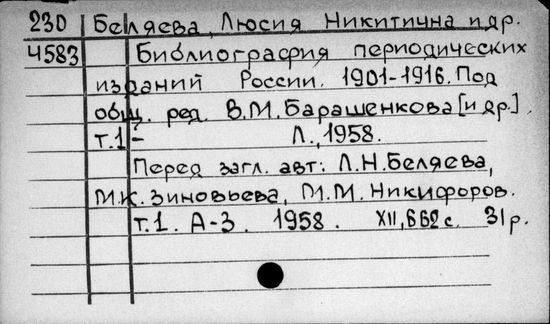 230 Беляева, Люсия Никитична и др.
4583 Библиография периодических
изданий России. 1901-1916. Под
общ. ред. В.М. Барашенкова [и др.].
т.1- Л., 1958.
Перед загл. авт: Л.Н. Беляева,
М.К. Зиновьева, М.М. Никифоров.
т.1. А-З. 1958. XII, 662 с. 31 р.